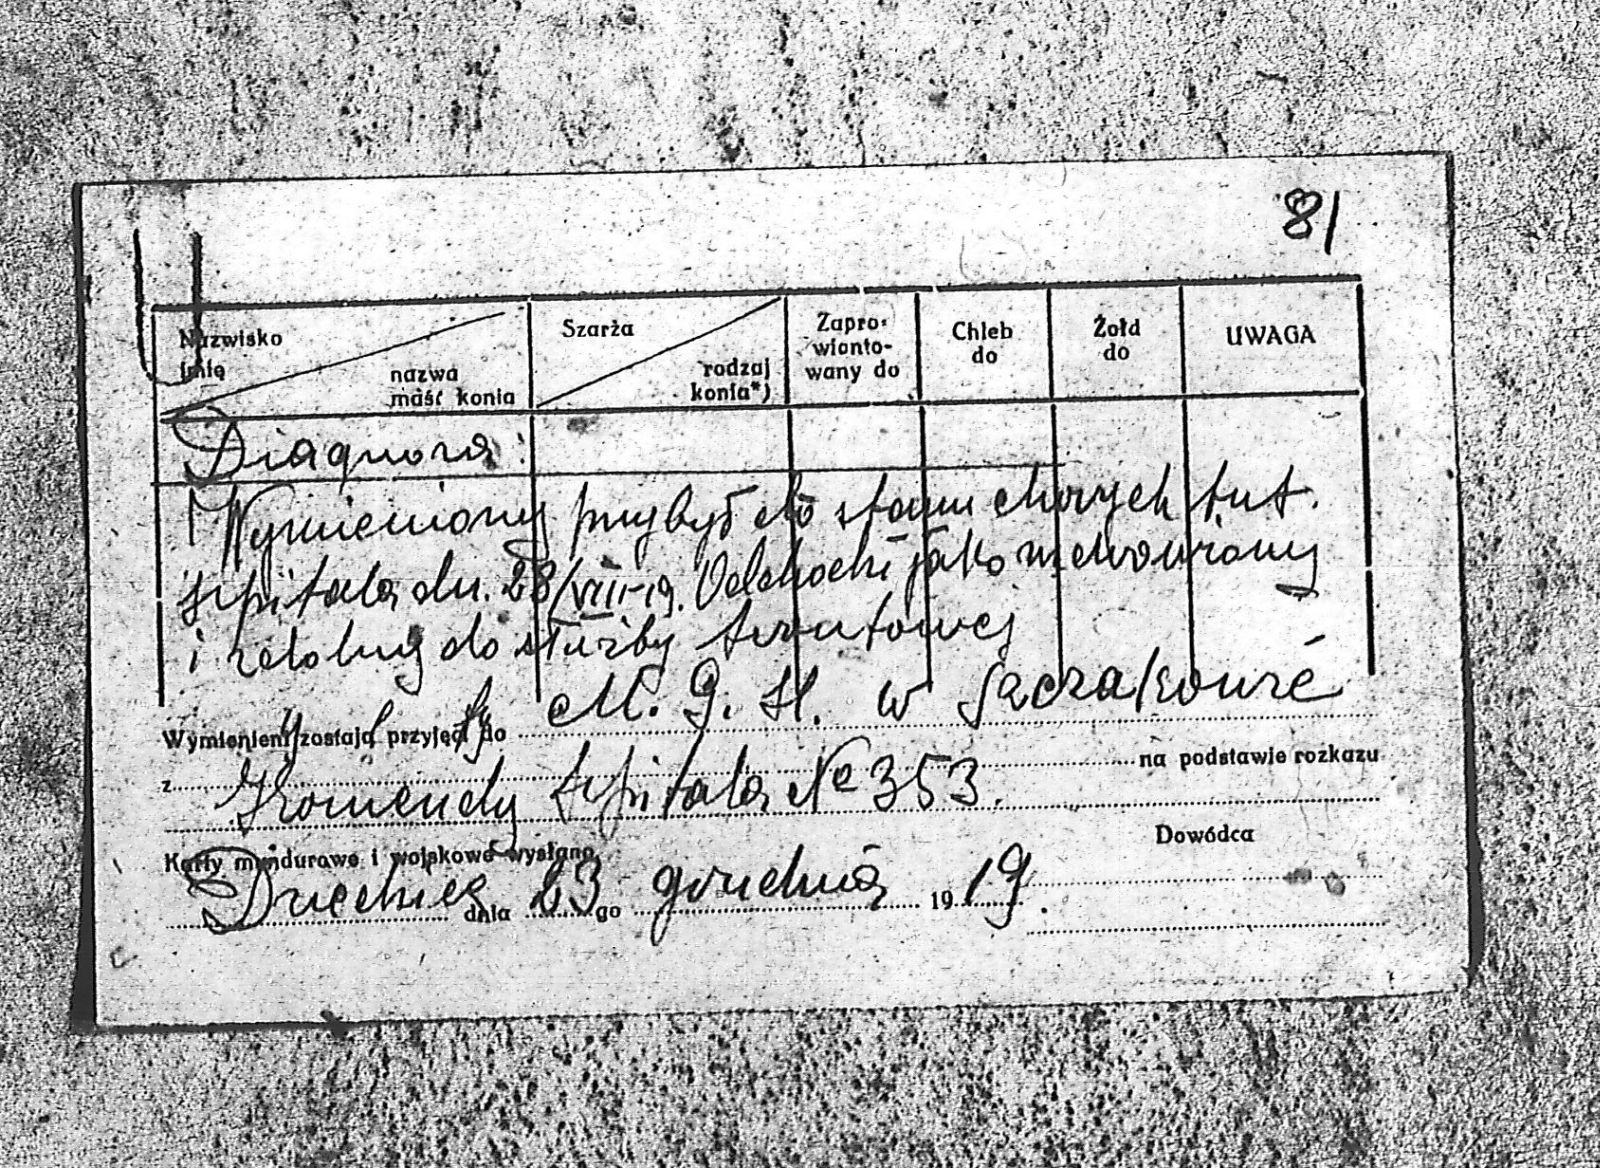 81
Nazwisko
imię
nazwa
maść konia
Szarża
rodzaj
konia*)
Zapro-
wianto-
wany do
Chleb
do
Żołd
do
UWAGA
Diagnoza:
Wymieniony przybył do stanu chorych tut.
szpitala dn. 28/VIII-19. Odchodzi jako uzdrowiony
i zdolny do służby frontowej
Wymienieni zostają przyjęci do M. G. H. w Szczakowie
z na podstawie rozkazu
Komendy Szpitala № 353.
Dowódca
Karty mundurowe i wojskowe wysłano
Dziedzice dnia 23 go grudnia 1919.